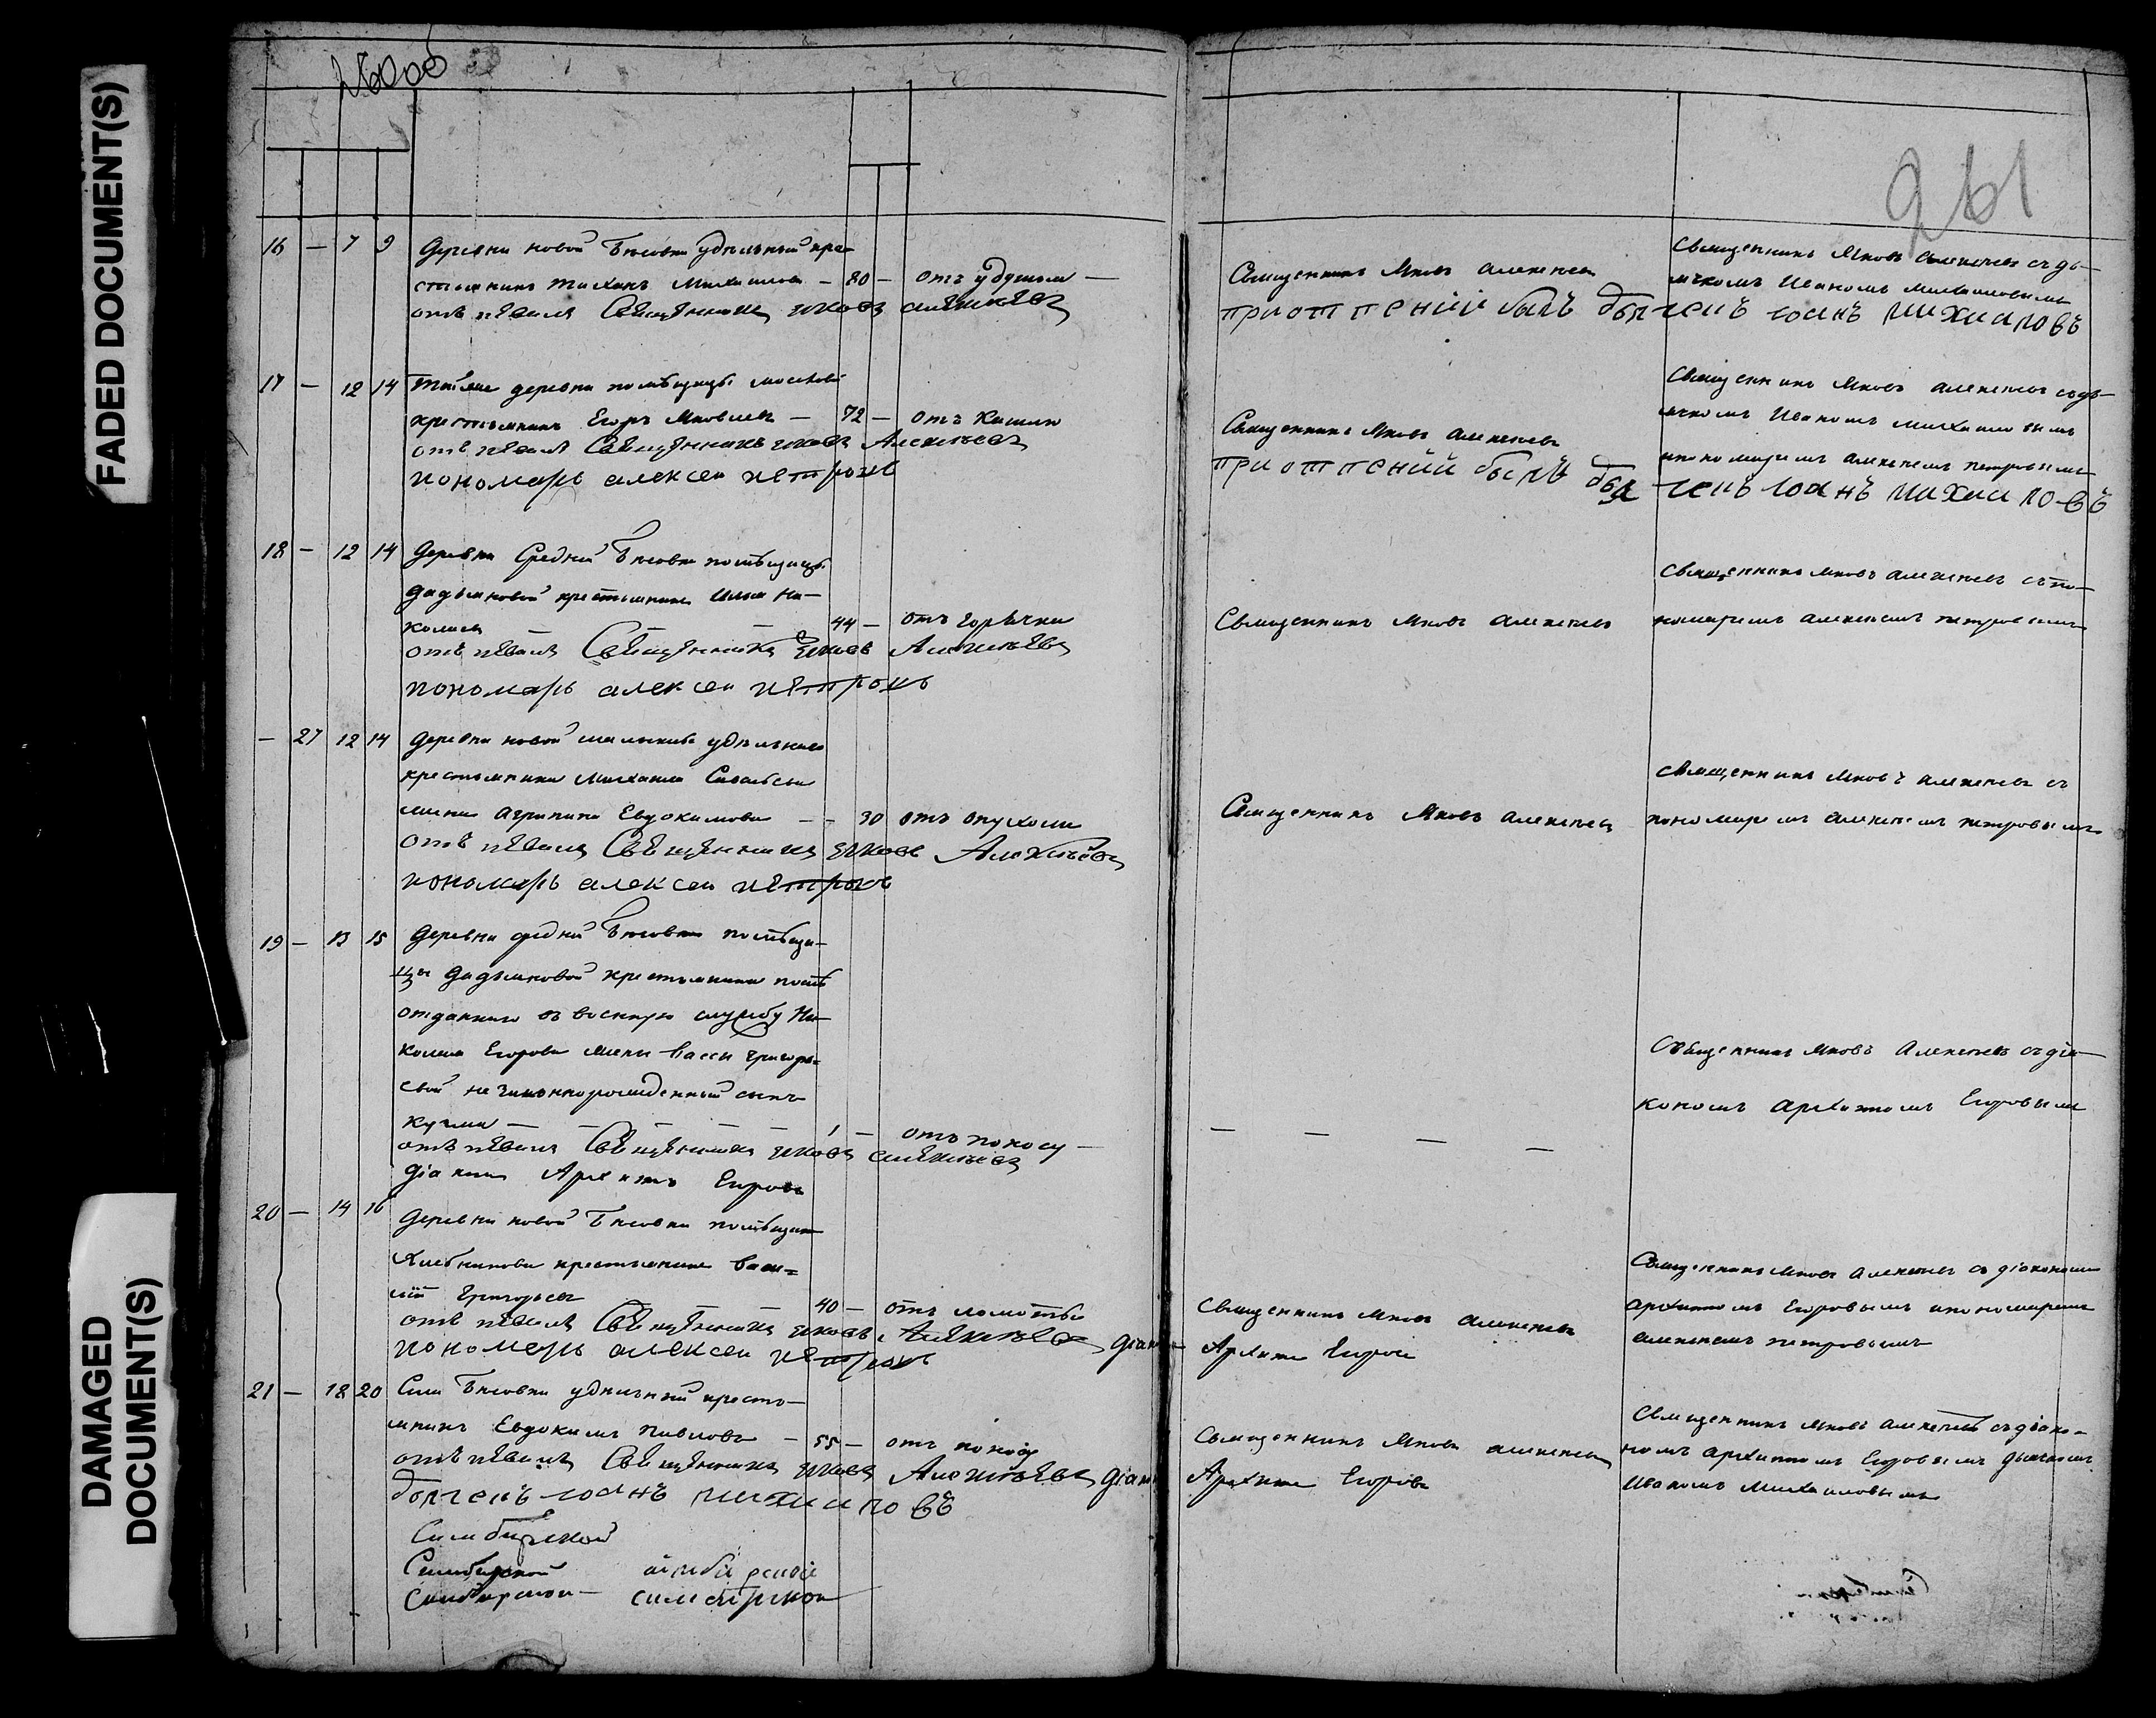 FADED DOCUMENT(S)
DAMAGED
DOCUMENT(S)
261
16 — 7 9 Деревни новой Бѣсовки удѣльный кре-
стьянинъ Михайловъ — 80 — отъ удушья —
отпѣвалъ Священникъ Иаковъ Алексѣевъ
Священникъ Яковъ Алексѣевъ
приотпении былъ дьячекъ Іоанъ Михаиловъ
Священникъ Яковъ Алексѣевъ съ дья-
чкомъ Иваномъ Михайловымъ
17 — 12 14 той же деревни помѣщицы
крестьянинъ Егоръ Яковлевъ — 72 — отъ кашлю
отпѣвалъ Священникъ Иаковъ Алексѣевъ
пономарь алексеи петровъ
Священникъ Яковъ Алексѣевъ
приотпении былъ дьячекъ Іоанъ Михаиловъ
Священникъ Яковъ Алексѣевъ съ дья-
чкомъ Иваномъ Михайловымъ
и пономаремъ Алексѣемъ Петровымъ
18 — 12 14 Деревни Средней Бѣсовки помѣщицы
крестьянинъ Илья Ни-
колаевъ — — 44 — отъ горячки
отпѣвалъ Священникъ Иаковъ Алексѣевъ
пономарь алексеи петровъ
Священникъ Яковъ Алексѣевъ
Священникъ Яковъ Алексѣевъ съ по-
номаремъ Алексѣемъ Петровымъ
— 27 12 14 Деревни новой удѣльнаго
крестьянина Михаила Савельева
жена Агрипина Евдокимова — — 30 отъ опухоли
отпѣвалъ Священникъ Иаковъ Алексѣевъ
пономарь алексеи петровъ
Священникъ Яковъ Алексѣевъ
Священникъ Яковъ Алексѣевъ съ
пономаремъ Алексѣемъ Петровымъ
19 — 13 15 Деревни средней Бѣсовки помѣщи-
цы крестьянина
отданнаго въ военную службу Ни-
колая Егорова жены Вассы Григорь-
евой незаконнорожденный сынъ
Кузма — — — — — 1 — отъ поносу —
отпѣвалъ Священникъ Иаковъ Алексѣевъ
діаконъ Архипъ Егоровъ
— — — —
Священникъ Яковъ Алексѣевъ съ діа-
кономъ Архипомъ Егоровымъ
20 — 14 16 Деревни новой Бѣсовки помѣщика
Хлебникова крестьянинъ Васи-
лій Григорьевъ — — — 40 — отъ ломоты
отпѣвалъ Священникъ Иаковъ Алексѣевъ
пономарь алексеи петровъ діаконъ
Священникъ Яковъ Алексѣевъ
Архипъ Егоровъ
Священникъ Яковъ Алексѣевъ съ діакономъ
Архипомъ Егоровымъ и пономаремъ
Алексѣемъ Петровымъ
21 — 18 20 Села Бѣсовки удѣльный кресть-
янинъ Евдокимъ Павловъ — 55 — отъ поносу
отпѣвалъ Священникъ Иаковъ Алексѣевъ діаконъ
дьячекъ Іоанъ Михаиловъ
Священникъ Яковъ Алексѣевъ
Архипъ Егоровъ
Священникъ Яковъ Алексѣевъ съ діако-
номъ Архипомъ Егоровымъ дьячкомъ
Иваномъ Михайловымъ
Симбирской
Симбирской симбирской
Симбирской — симбирской